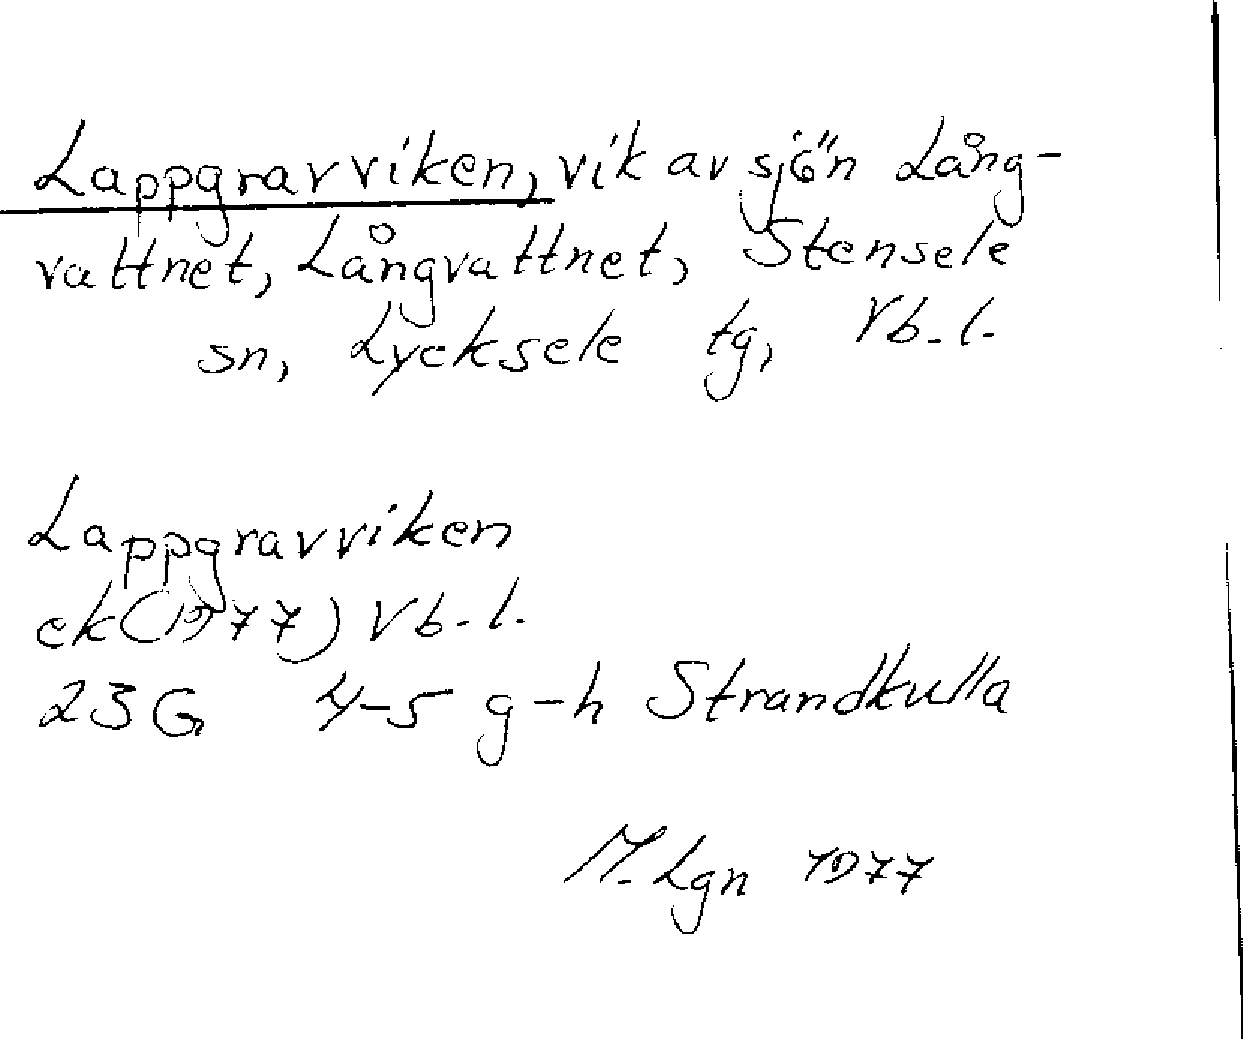 Lappgravviken, vik av sjön Lång-
vattnet, Långvattnet, Stensele
sn, Lycksele tg, Vb. l.
Lappgravviken
ek (1977) Vb. l.
23G 4-5 g-h Strandkulla
M. Lgn 1977